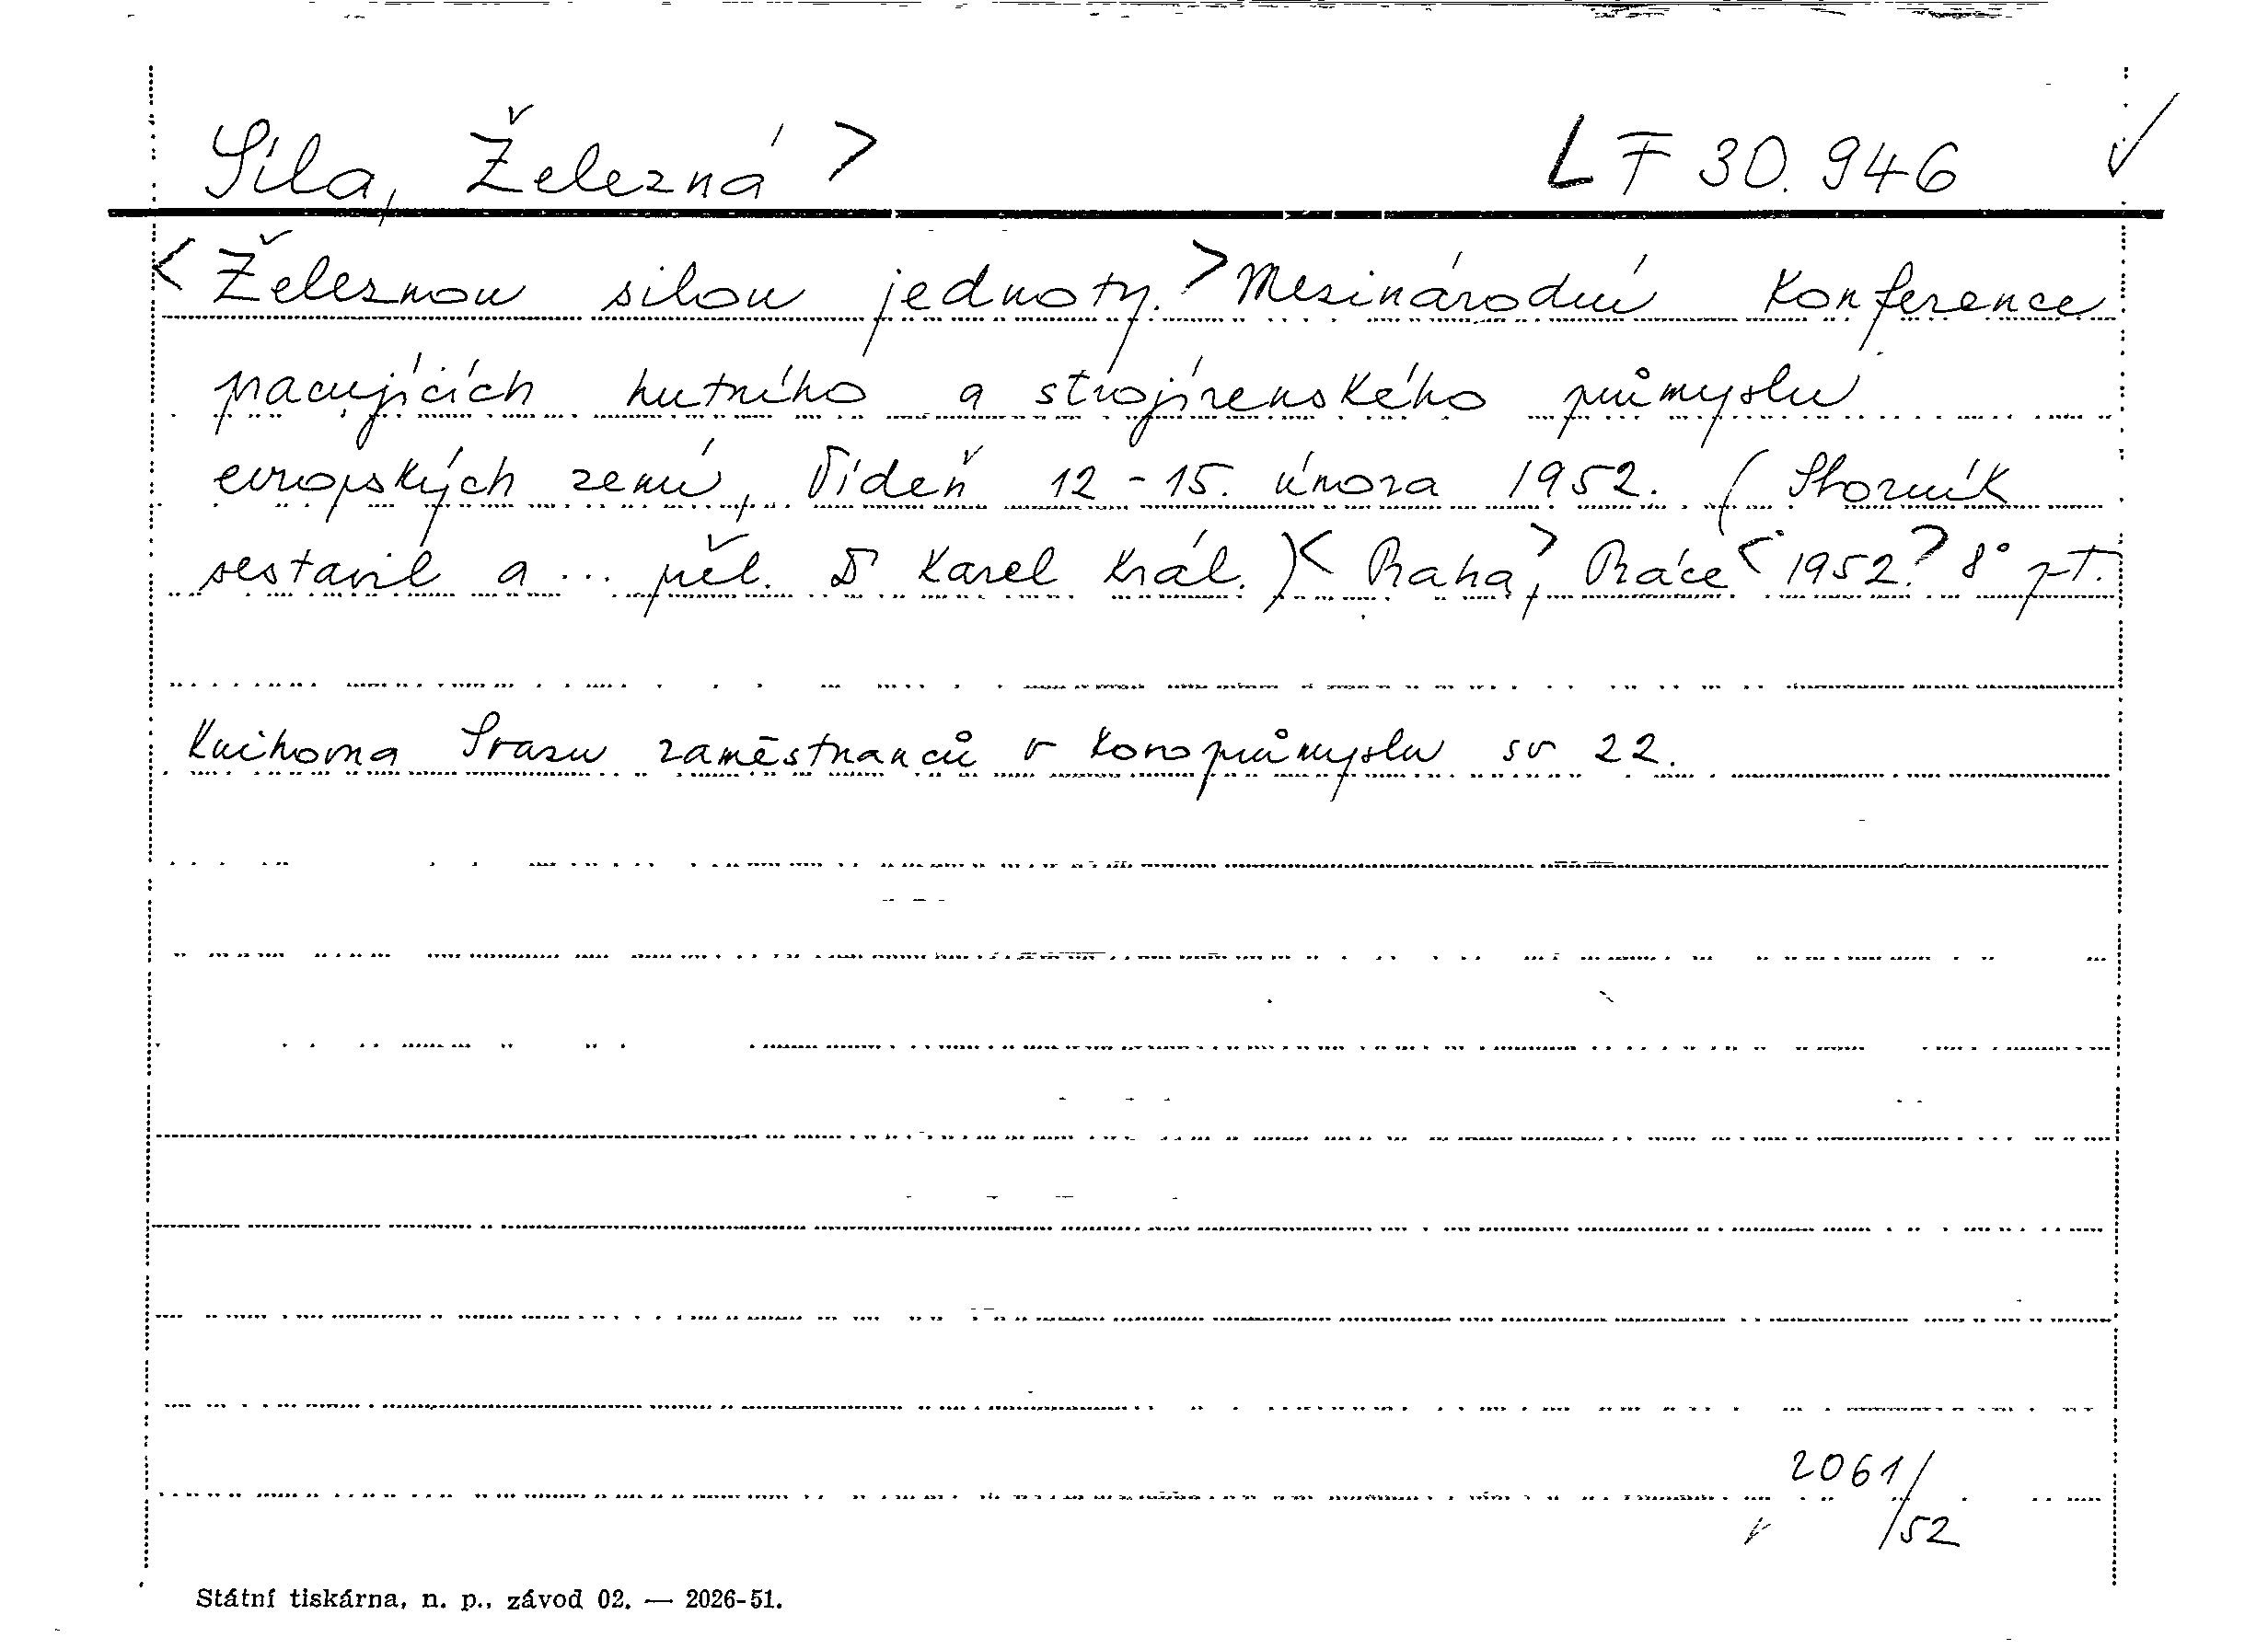 Síla, Železná > LF 30.946 ✓
< Železnou silou jednoty. > Mezinárodní konference
pracujících hutního a strojírenského průmyslu
evropských zemí, Vídeň 12-15. února 1952. (Sborník
sestavil a ... přel. Dr Karel Král.) < Praha, > Práce < 1952. > 8°
Knihovna Svazu zaměstnanců v kovoprůmyslu sv 22.
2061/
/52
Státní tiskárna, n. p., závod 02. — 2026-51.